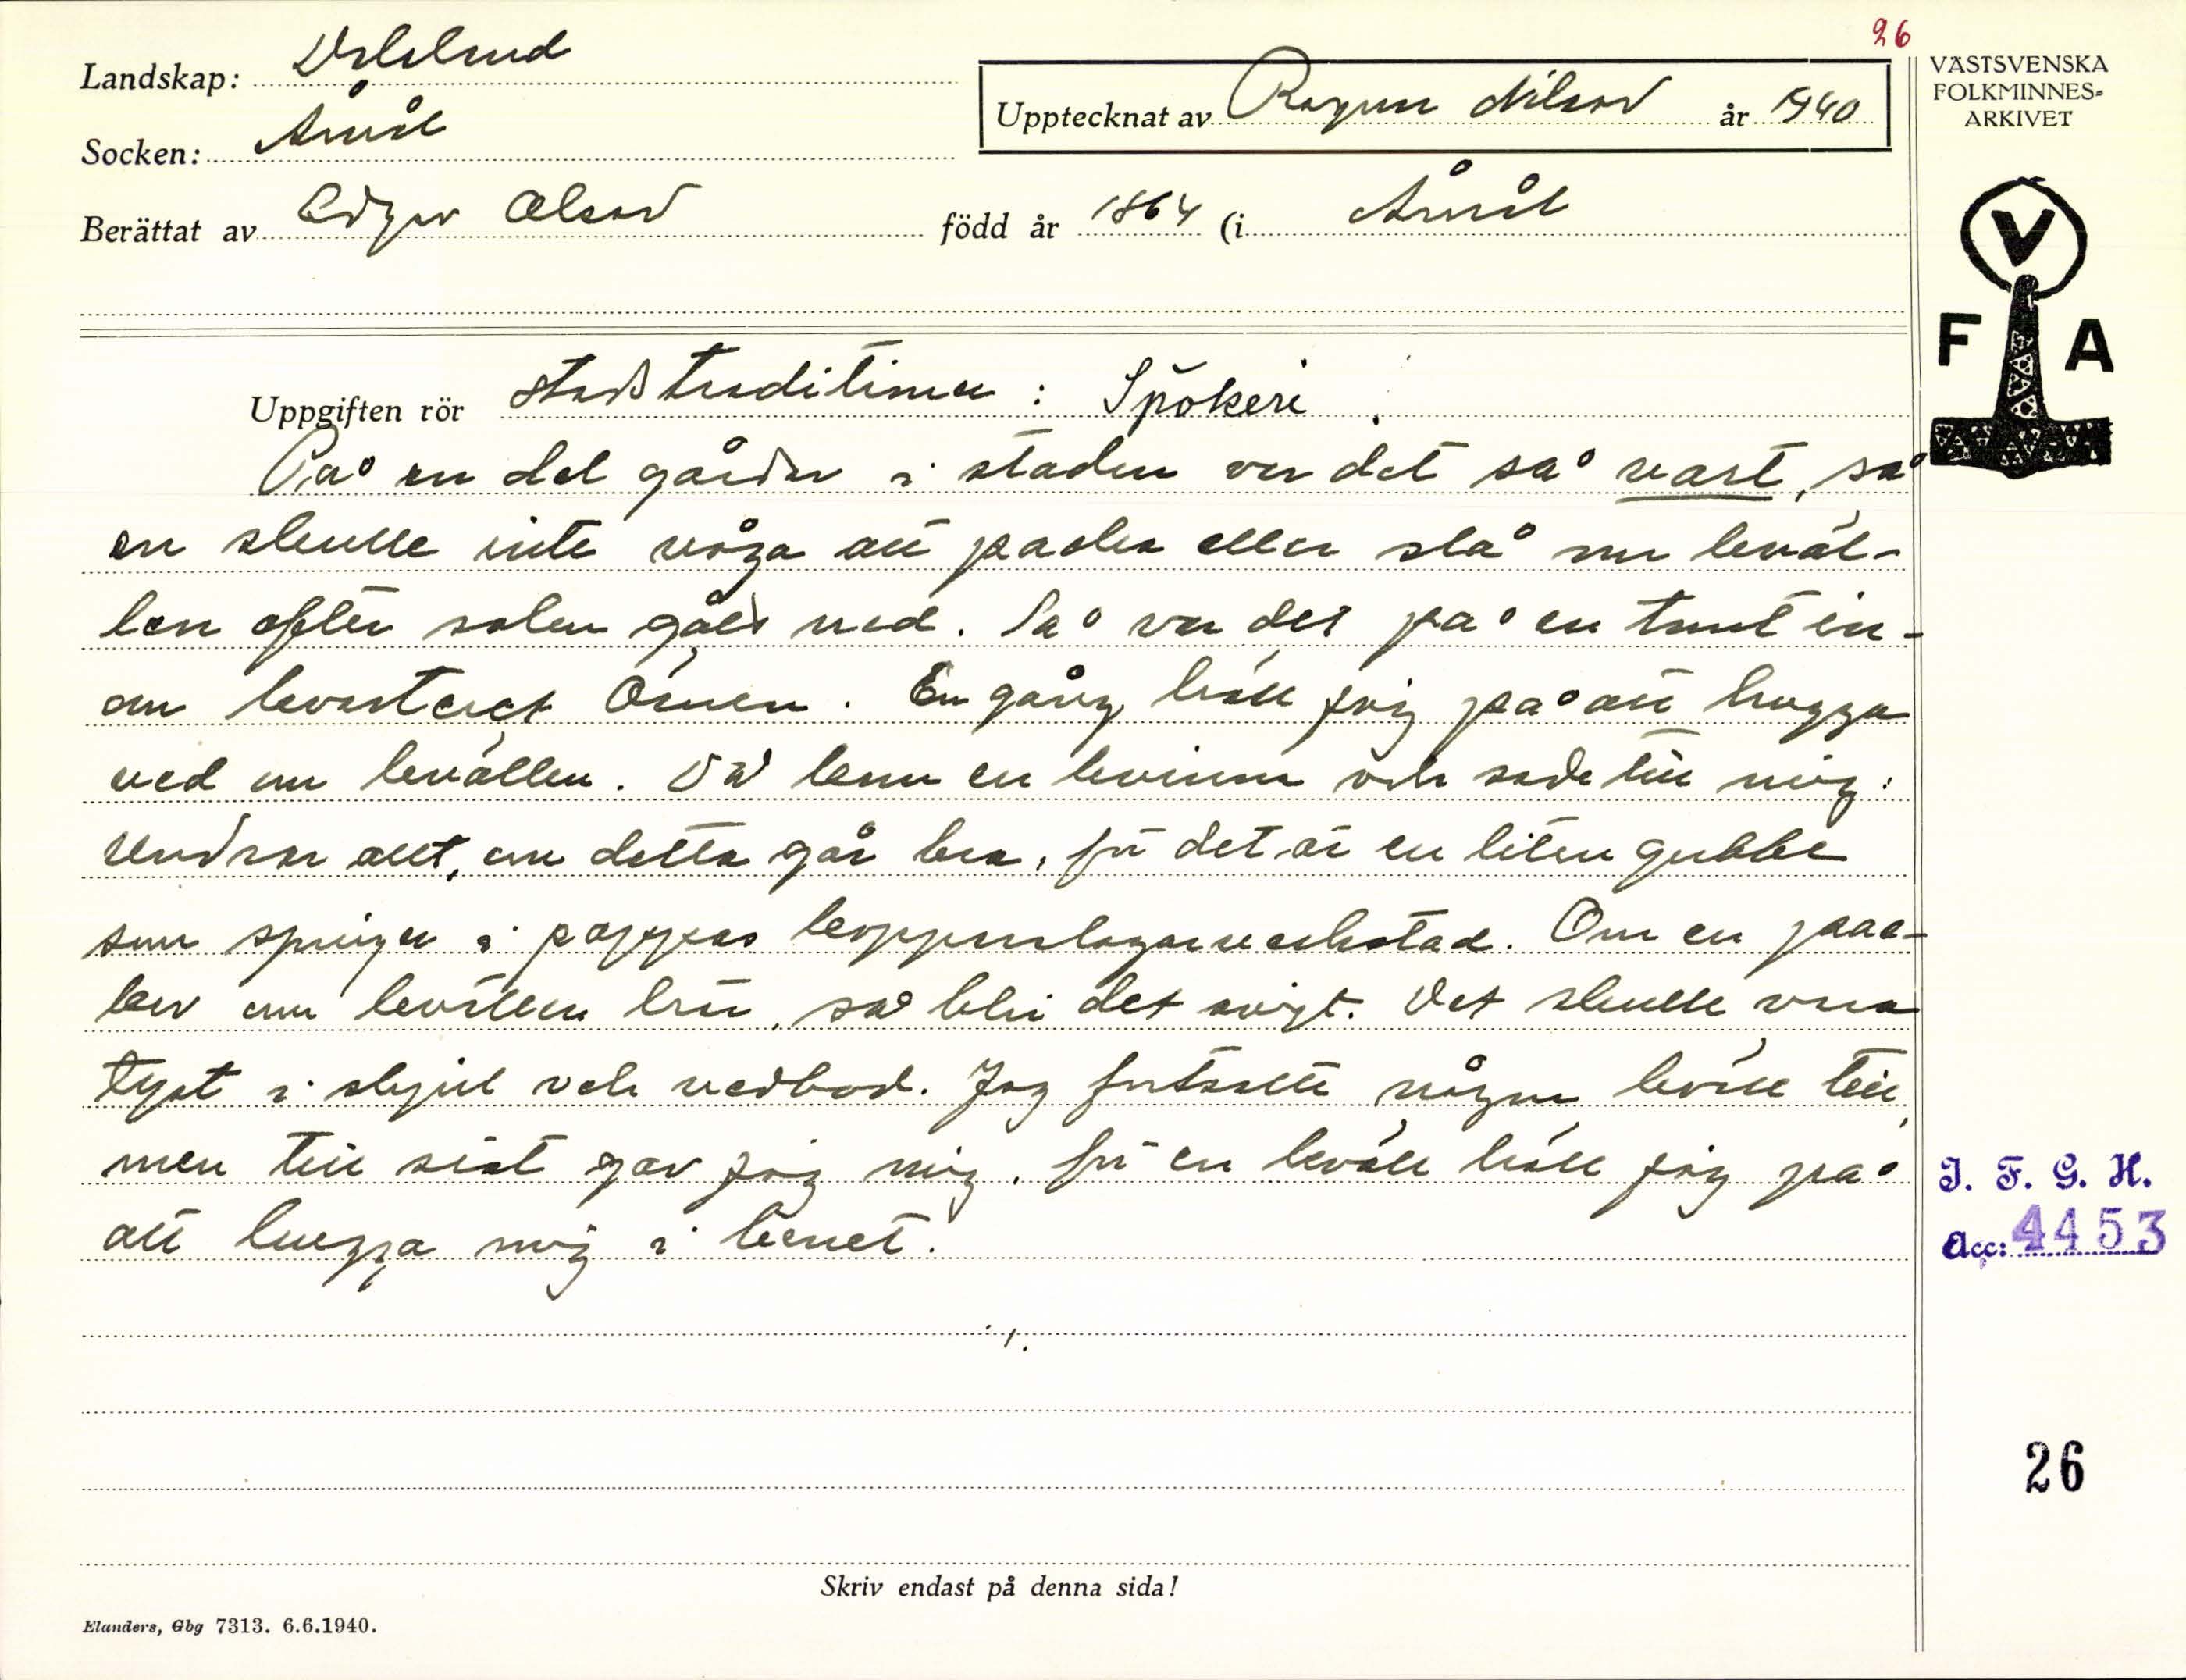 26
Landskap: Dalsland
Socken: Åmål
Upptecknat av Ragnar Nilsson år 1940
VÄSTSVENSKA
FOLKMINNES-
ARKIVET
Berättat av Edgar Olsson född år 1864 (i Åmål
V
F A
Uppgiften rör stadstraditioner: Spökeri.
På en del gårdar i staden var det så vast, så
en skulle inte våga att packa eller slå om kväl-
len efter solen gått ned. Så var det på en tomt in-
om kvarteret Örnen. En gång höll jag på att hugga
ved om kvällen. Då kom en kvinna och sade till mig:
Undrar allt, om detta går bra, för det är en liten gubbe
som springer i pappas kopparslagareverkstad. Om en pac-
kar om kvällen här, så blir det svårt. Det skulle vara
tyst i skjul och vedbod. Jag fortsatte någon kväll till,
men till sist gav jag mig, för en kväll höll jag på
att hugga mig i benet.
J. F. G. H.
Acc: 4453
26
Skriv endast på denna sida!
Elanders, Gbg 7313. 6.6.1940.